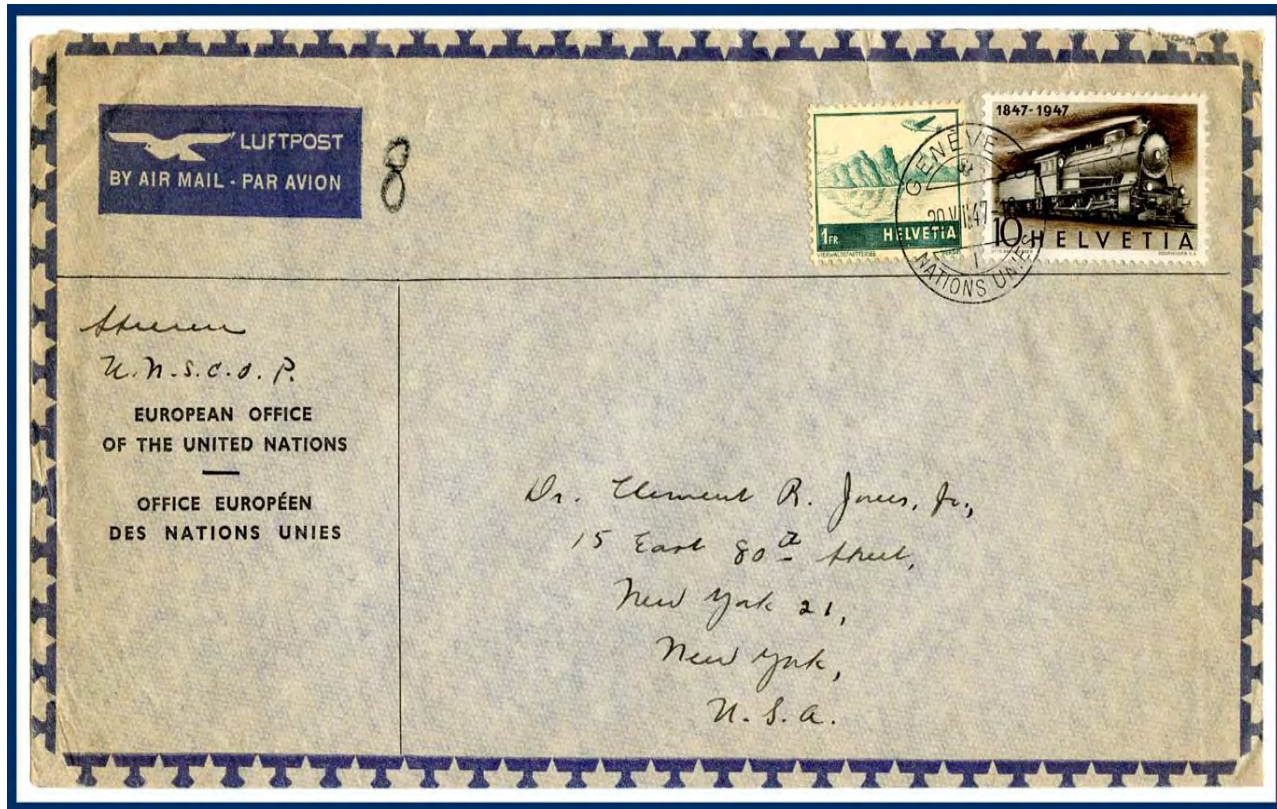 LUFTPOST
BY AIR MAIL - PAR AVION
8
1 FR. HELVETIA
VIERWALDSTAETTERSEE
1847-1947
10c HELVETIA
GENÈVE
20.VII.47
NATIONS UNIES
U.N.S.C.O.P.
EUROPEAN OFFICE
OF THE UNITED NATIONS
OFFICE EUROPÉEN
DES NATIONS UNIES
Dr. Clement R. Jones, Jr.,
15 East 80th Street,
New York 21,
New York,
U.S.A.